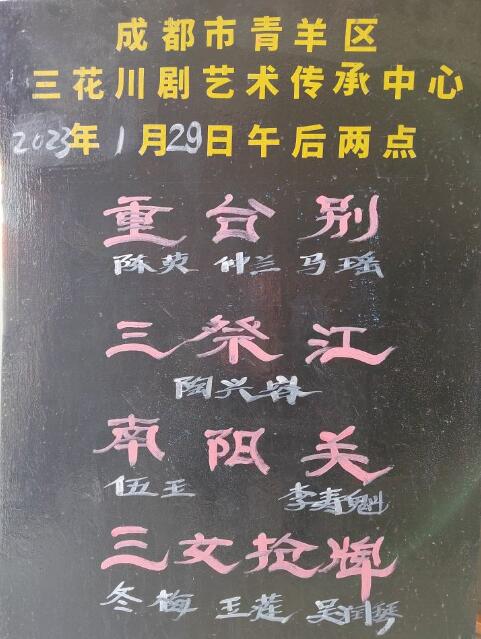 成都市青羊区
三花川剧艺术传承中心
2023年1月29日午后两点
重台别
陈英 仲兰 马瑶
三祭江
陶兴蓉
南阳关
伍王 李寿魁
三女抢牌
冬梅 王莲 吴琴